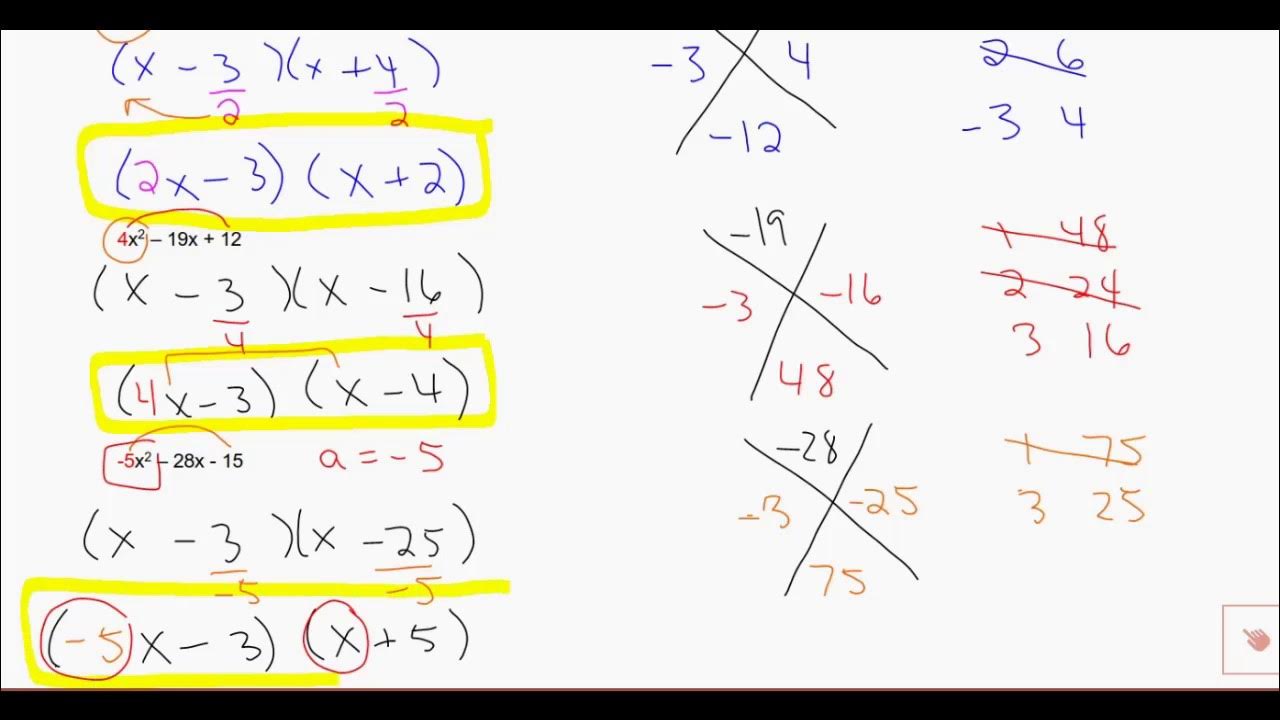 (x - 3/2)(x + 4/2)
(2x - 3) (x + 2)
4x² – 19x + 12
(x - 3/4)(x - 16/4)
(4x - 3) (x - 4)
-5x² – 28x - 15 a = -5
(x - 3/-5)(x - 25/-5)
(-5x - 3) (x + 5)
-3 4
-12
2 6
-3 4
-19
-3 -16
48
1 48
2 24
3 16
-28
-3 -25
75
1 75
3 25